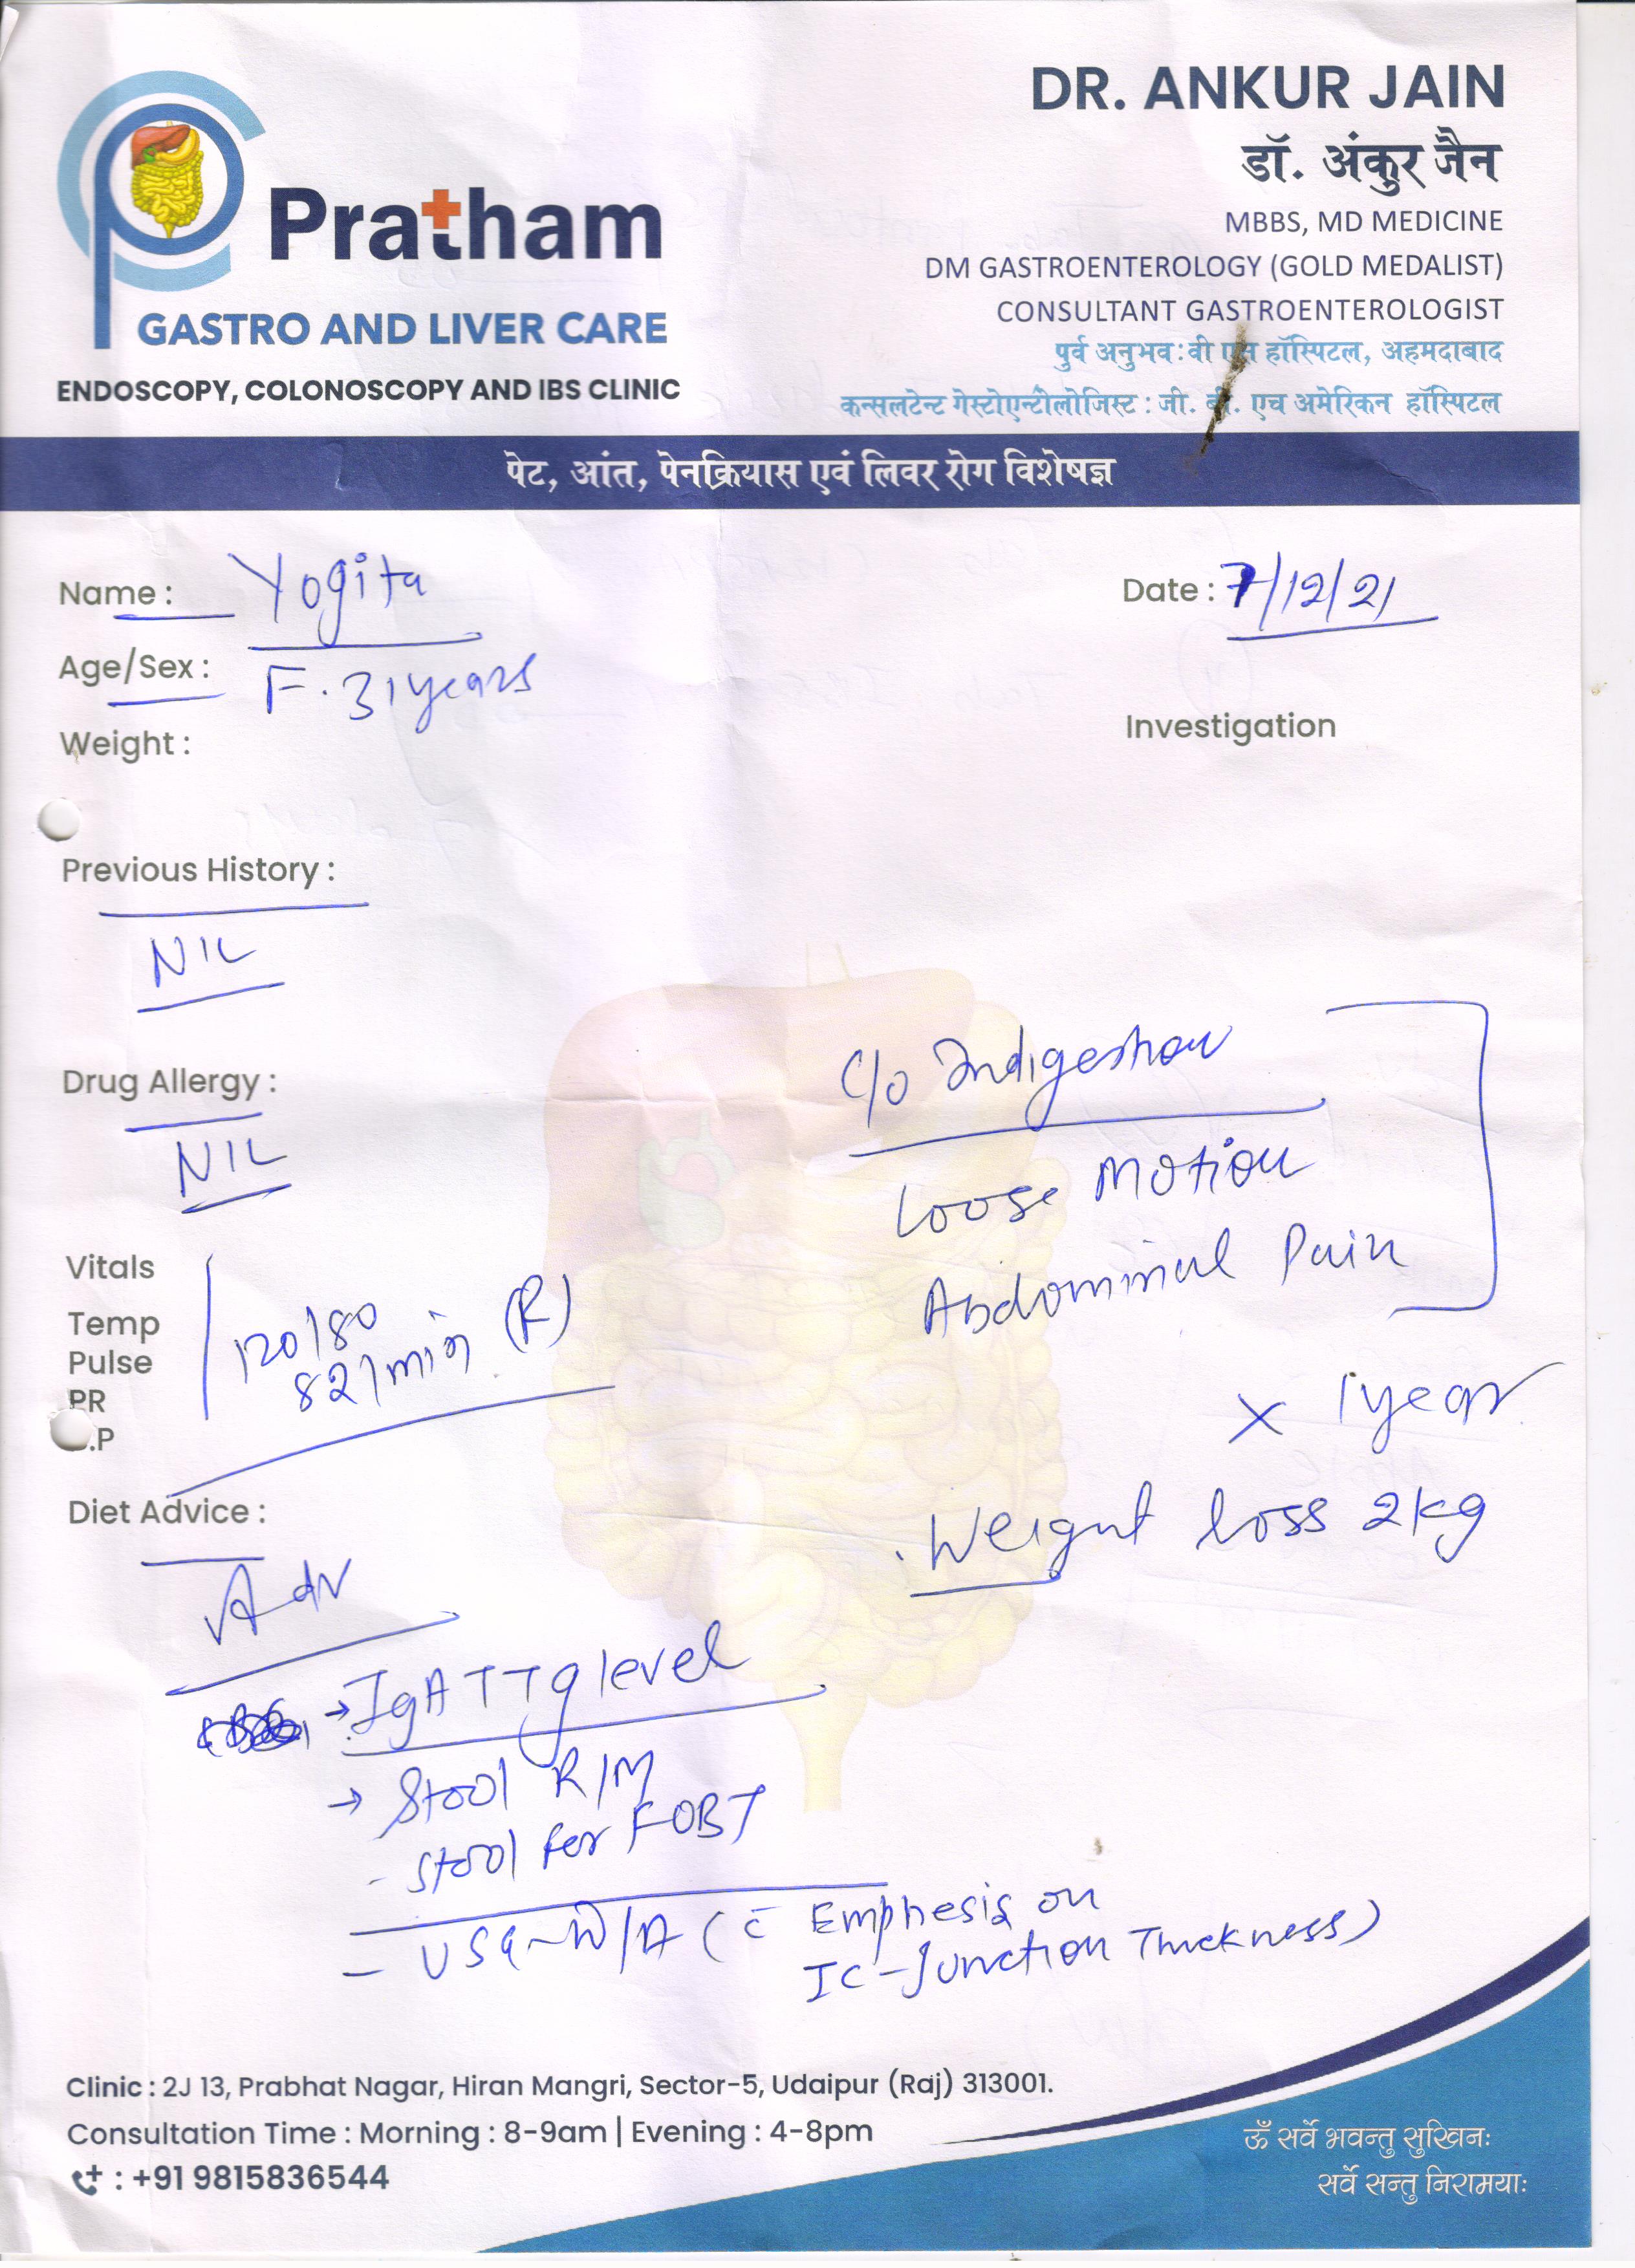 Pratham
GASTRO AND LIVER CARE
ENDOSCOPY, COLONOSCOPY AND IBS CLINIC
DR. ANKUR JAIN
डॉ. अंकुर जैन
MBBS, MD MEDICINE
DM GASTROENTEROLOGY (GOLD MEDALIST)
CONSULTANT GASTROENTEROLOGIST
पुर्व अनुभव : वी एस हॉस्पिटल, अहमदाबाद
कन्सलटेन्ट गेस्टोएन्टीलोजिस्ट : जी. बी. एच अमेरिकन हॉस्पिटल
पेट, आंत, पेनक्रियास एवं लिवर रोग विशेषज्ञ
Name : Yogita
Date : 7/12/21
Age/Sex : F. 31 years
Weight :
Investigation
Previous History :
NIL
Drug Allergy :
NIL
C/o Indigestion
Loose Motion
Abdominal Pain
x 1 year
. Weight loss 2kg
Vitals
Temp 120/80
Pulse 82/min (R)
PR
.P
Diet Advice :
Adv
→ IgA TTg level
→ Stool R/M
- Stool for FOBT
- USG-W/A (c̄ Emphesis on
IC-Junction Thickness)
Clinic : 2J 13, Prabhat Nagar, Hiran Mangri, Sector-5, Udaipur (Raj) 313001.
Consultation Time : Morning : 8-9am | Evening : 4-8pm
: +91 9815836544
ॐ सर्वे भवन्तु सुखिनः
सर्वे सन्तु निरामयाः